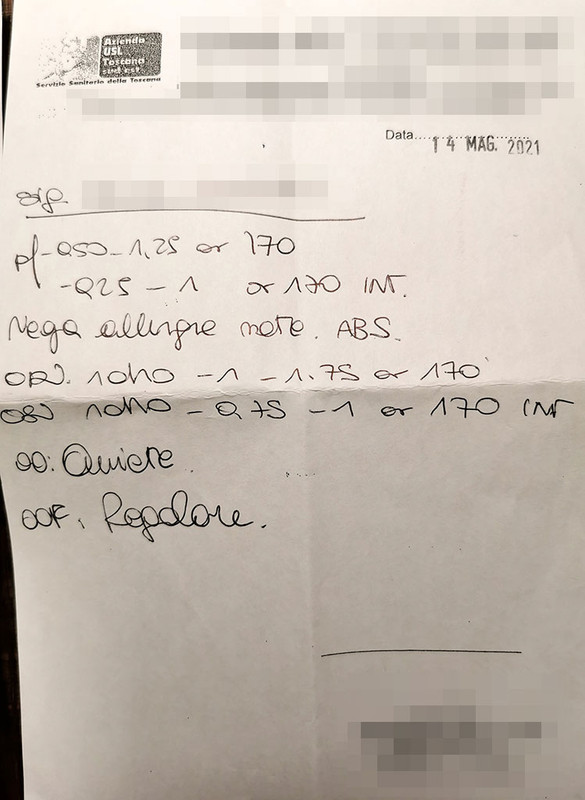 Azienda
USL
Toscana
sud est
Servizio Sanitario della Toscana
Data.......................... 14 MAG. 2021
Sig.
pf -0,50 -1,25 ax 170
-0,25 -1 ax 170 INT.
Nega allergie note. ABS.
ODV. 10/10 -1 -1.75 ax 170
OSV 10/10 -0,75 -1 ax 170 INT
OO: Quiete.
OOF: Regolare.